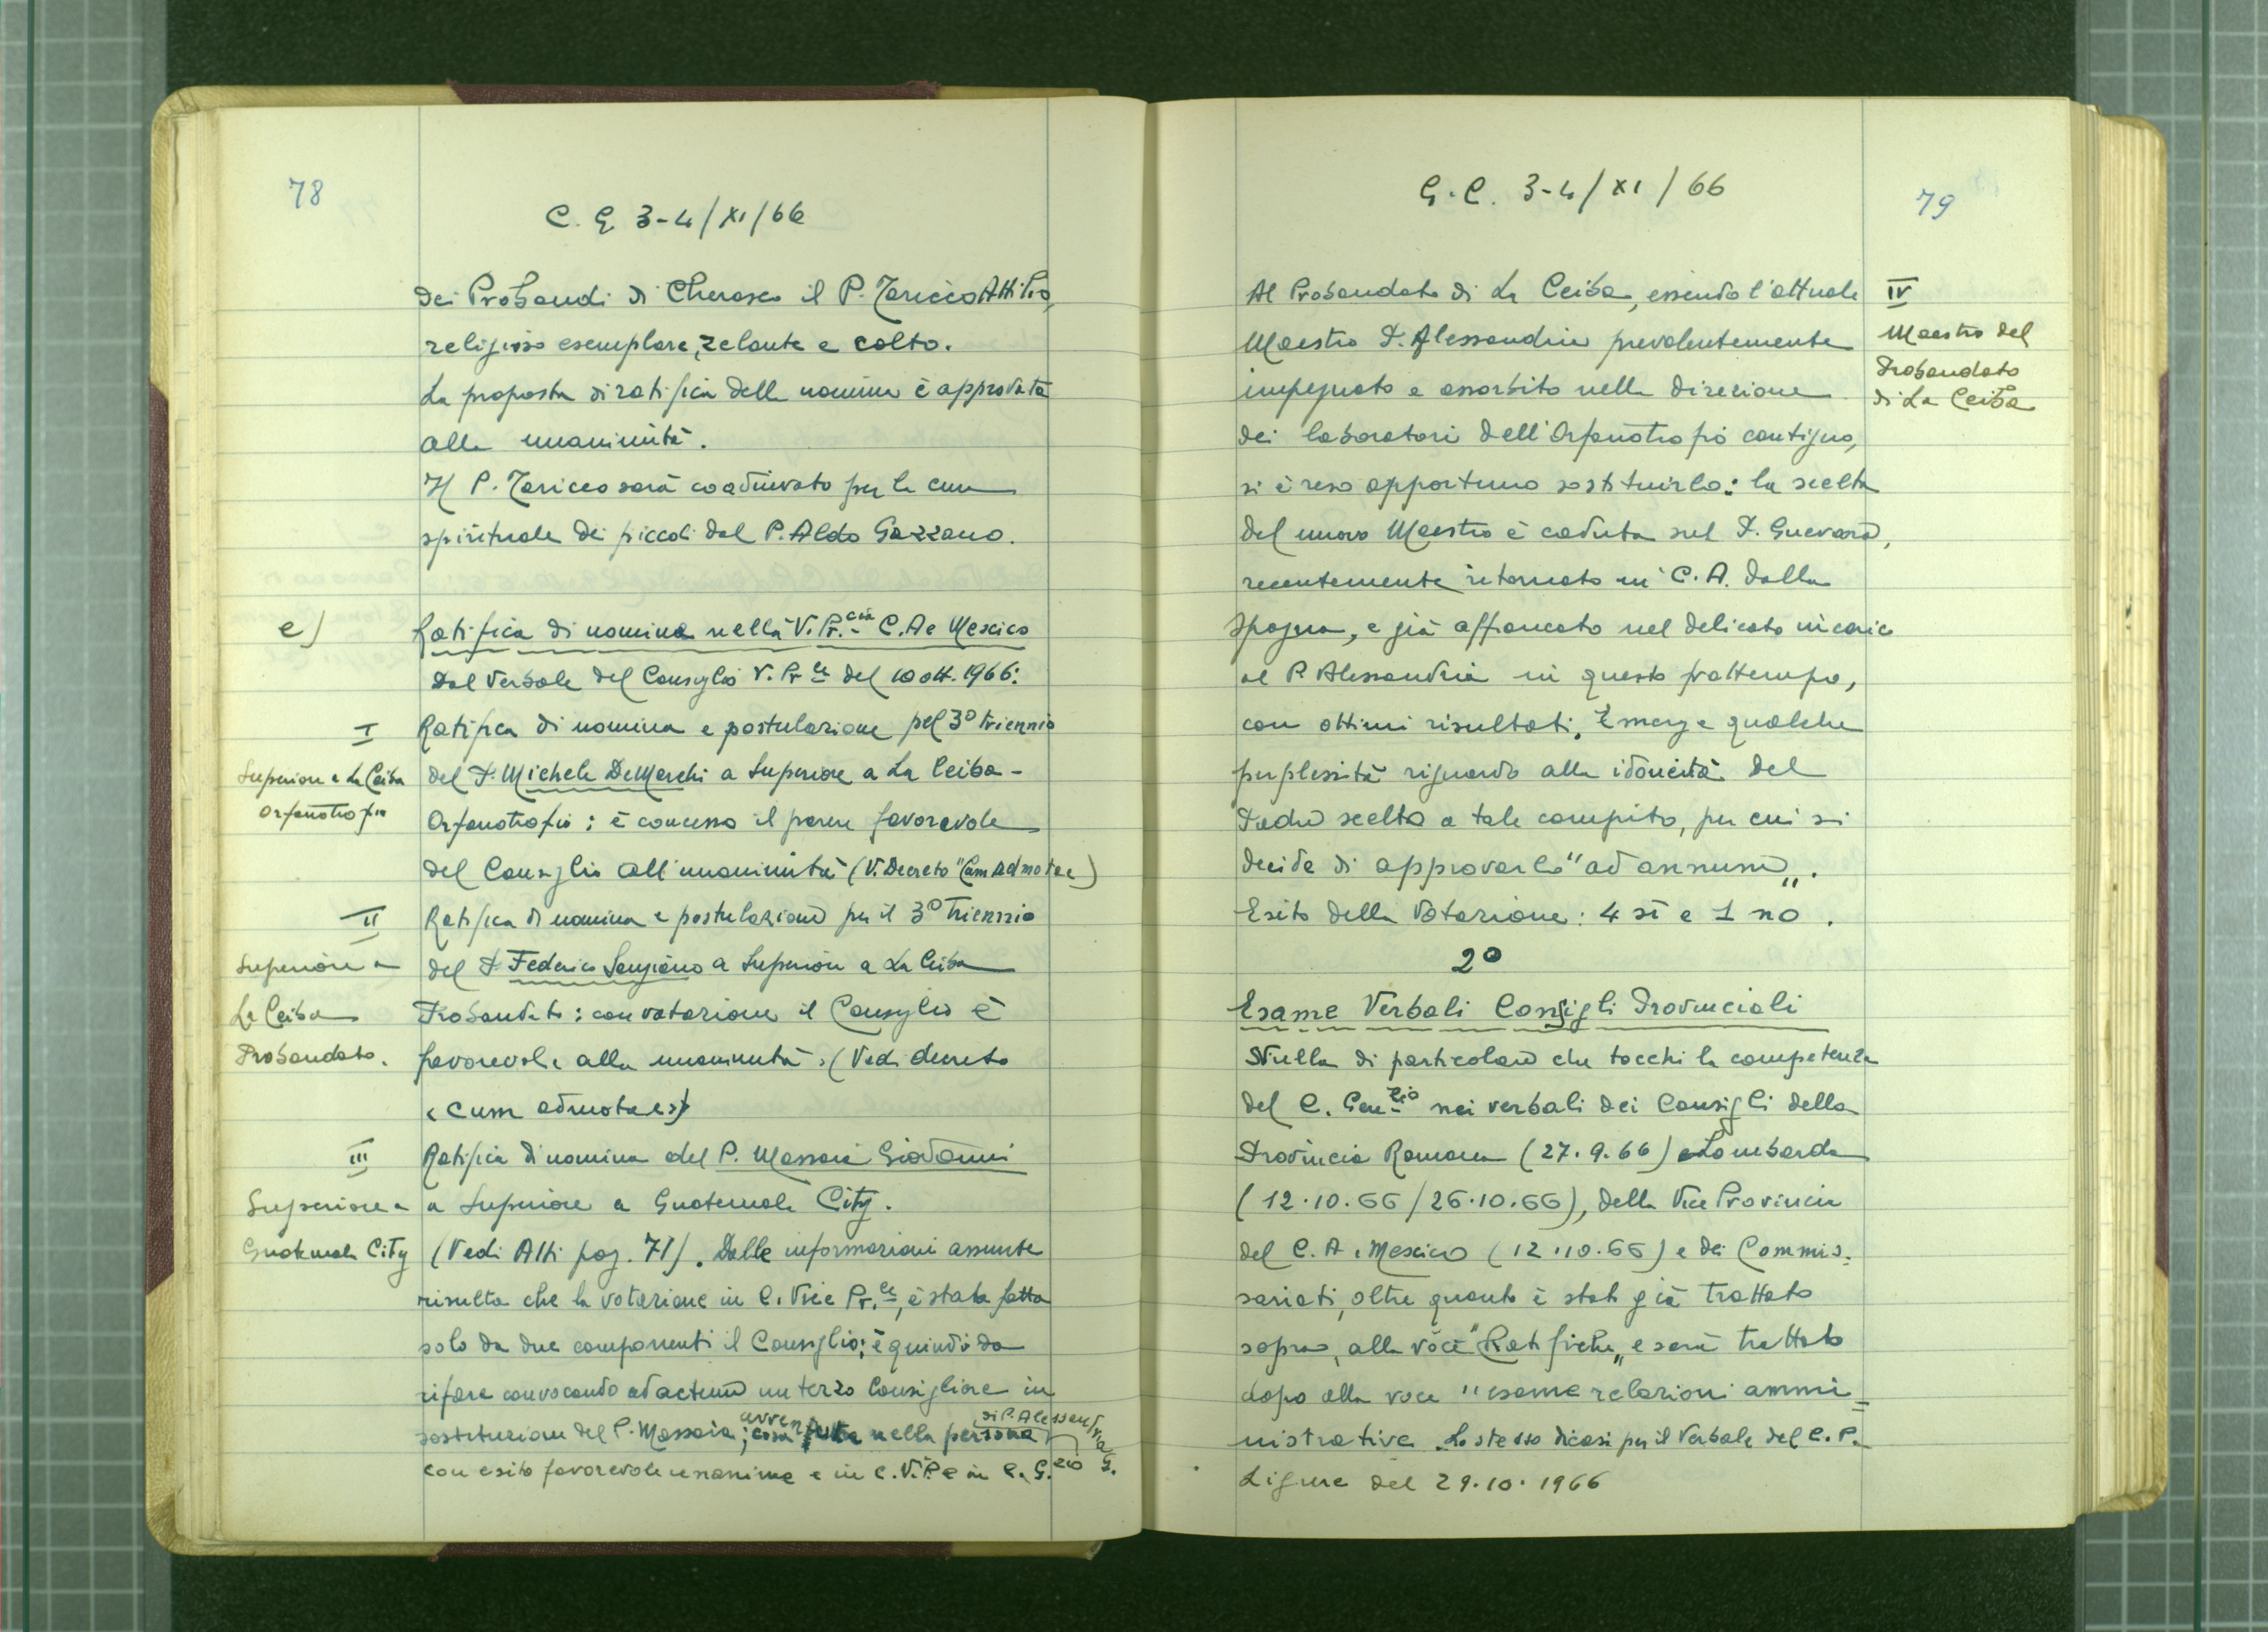 78
C. G 3-4/XI/66
dei Probandi di Cherasco il P. Taricco Attilio,
religioso esemplare, zelante e colto.
La proposta di ratifica della nomina è approvata
alla unanimità.
Il P. Taricco sarà coadiuvato per la cura
spirituale dei piccoli dal P. Aldo Gazzano.
e)
Ratifica di nomina nella V. Pr.cia C.A e Mexico
Dal Verbale del Consiglio V. Pr le del 10 ott. 1966:
I
Ratifica di nomina e postulazione pel 3° triennio
Superiore a La Ceiba
del P. Michele DeMarchi a Superiore a La Ceiba -
Orfanotrofio
Orfanotrofio : è concesso il parere favorevole
del Consiglio all'unanimità (V. Decreto "Cum admotae)
II
Ratifica di nomina e postulazione per il 3° Triennio
Superiore a
del P. Federico Sangiano a Superiore a La Ceiba
La Ceiba
Probandato : con votazione il Consiglio è
Probandato.
favorevole alla unanimità. (Vedi decreto
"Cum admotae")
III
Ratifica di nomina del P. Massaia Giovanni
Superiore a
a Superiore a Guatemala City.
Guatemala City
(Vedi Atti pag. 71). Dalle informazioni assunte
risulta che la votazione in C. Vice Pr.le, è stata fatta
solo da due componenti il Consiglio; è quindi da
rifare convocando ad actum un terzo Consigliere in
sostituzione del P. Massaia; cosa avvenuta nella persona di P. Alessandria G.
con esito favorevole unanime e in C.V.P. e in C. G.zio
G.C. 3-4/XI/66
79
Al Probandato di La Ceiba, essendo l'attuale
IV
Maestro P. Alessandria prevalentemente
Maestro del
Probandato
impegnato e assorbito nella direzione
di La Ceiba
dei laboratori dell'Orfanotrofio contiguo,
si è reso opportuno sostituirlo: la scelta
del nuovo Maestro è caduta sul P. Guevara,
recentemente ritornato in C.A. dalla
Spagna, e già affiancato nel delicato incarico
al P. Alessandria in questo frattempo,
con ottimi risultati. Emerge qualche
perplessità riguardo alla idoneità del
Padre scelto a tale compito, per cui si
decide di approvarlo "ad annum„.
Esito della Votazione: 4 sì e 1 no.
2°
Esame Verbali Consigli Provinciali
Nulla di particolare che tocchi la competenza
del C. Gen.lio nei verbali dei Consigli della
Provincia Romana (27.9.66) e Lombarda
(12.10.66/26.10.66), della Vice Provincia
del C.A. Mexico (12.10.66) e dei Commis-
sariati, oltre quanto è stato già trattato
sopra, alla voce "Ratifiche„ e sarà trattato
dopo alla voce "esame relazioni ammi=
nistrative. Lo stesso dicasi per il Verbale del C.P.
Ligure del 29.10.1966